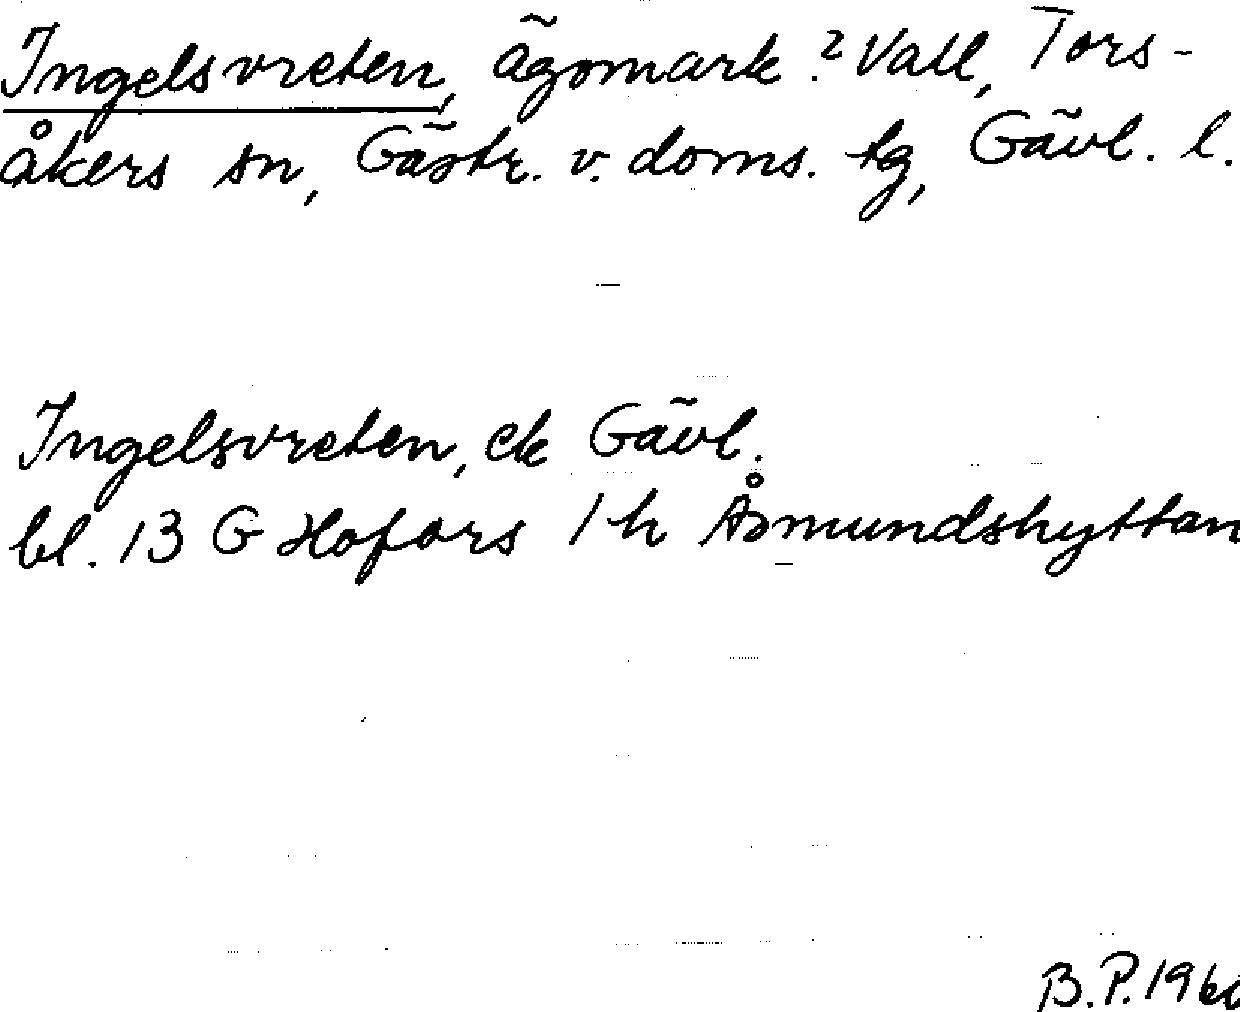 Ingelsvreten, ägomark ? Vall, Tors-
åkers sn, Gästr. v. doms. tg, Gävl. l.
Ingelsvreten, ek Gävl.
bl. 13 G Hofors 1 h Åsmundshyttan
B.P. 1960